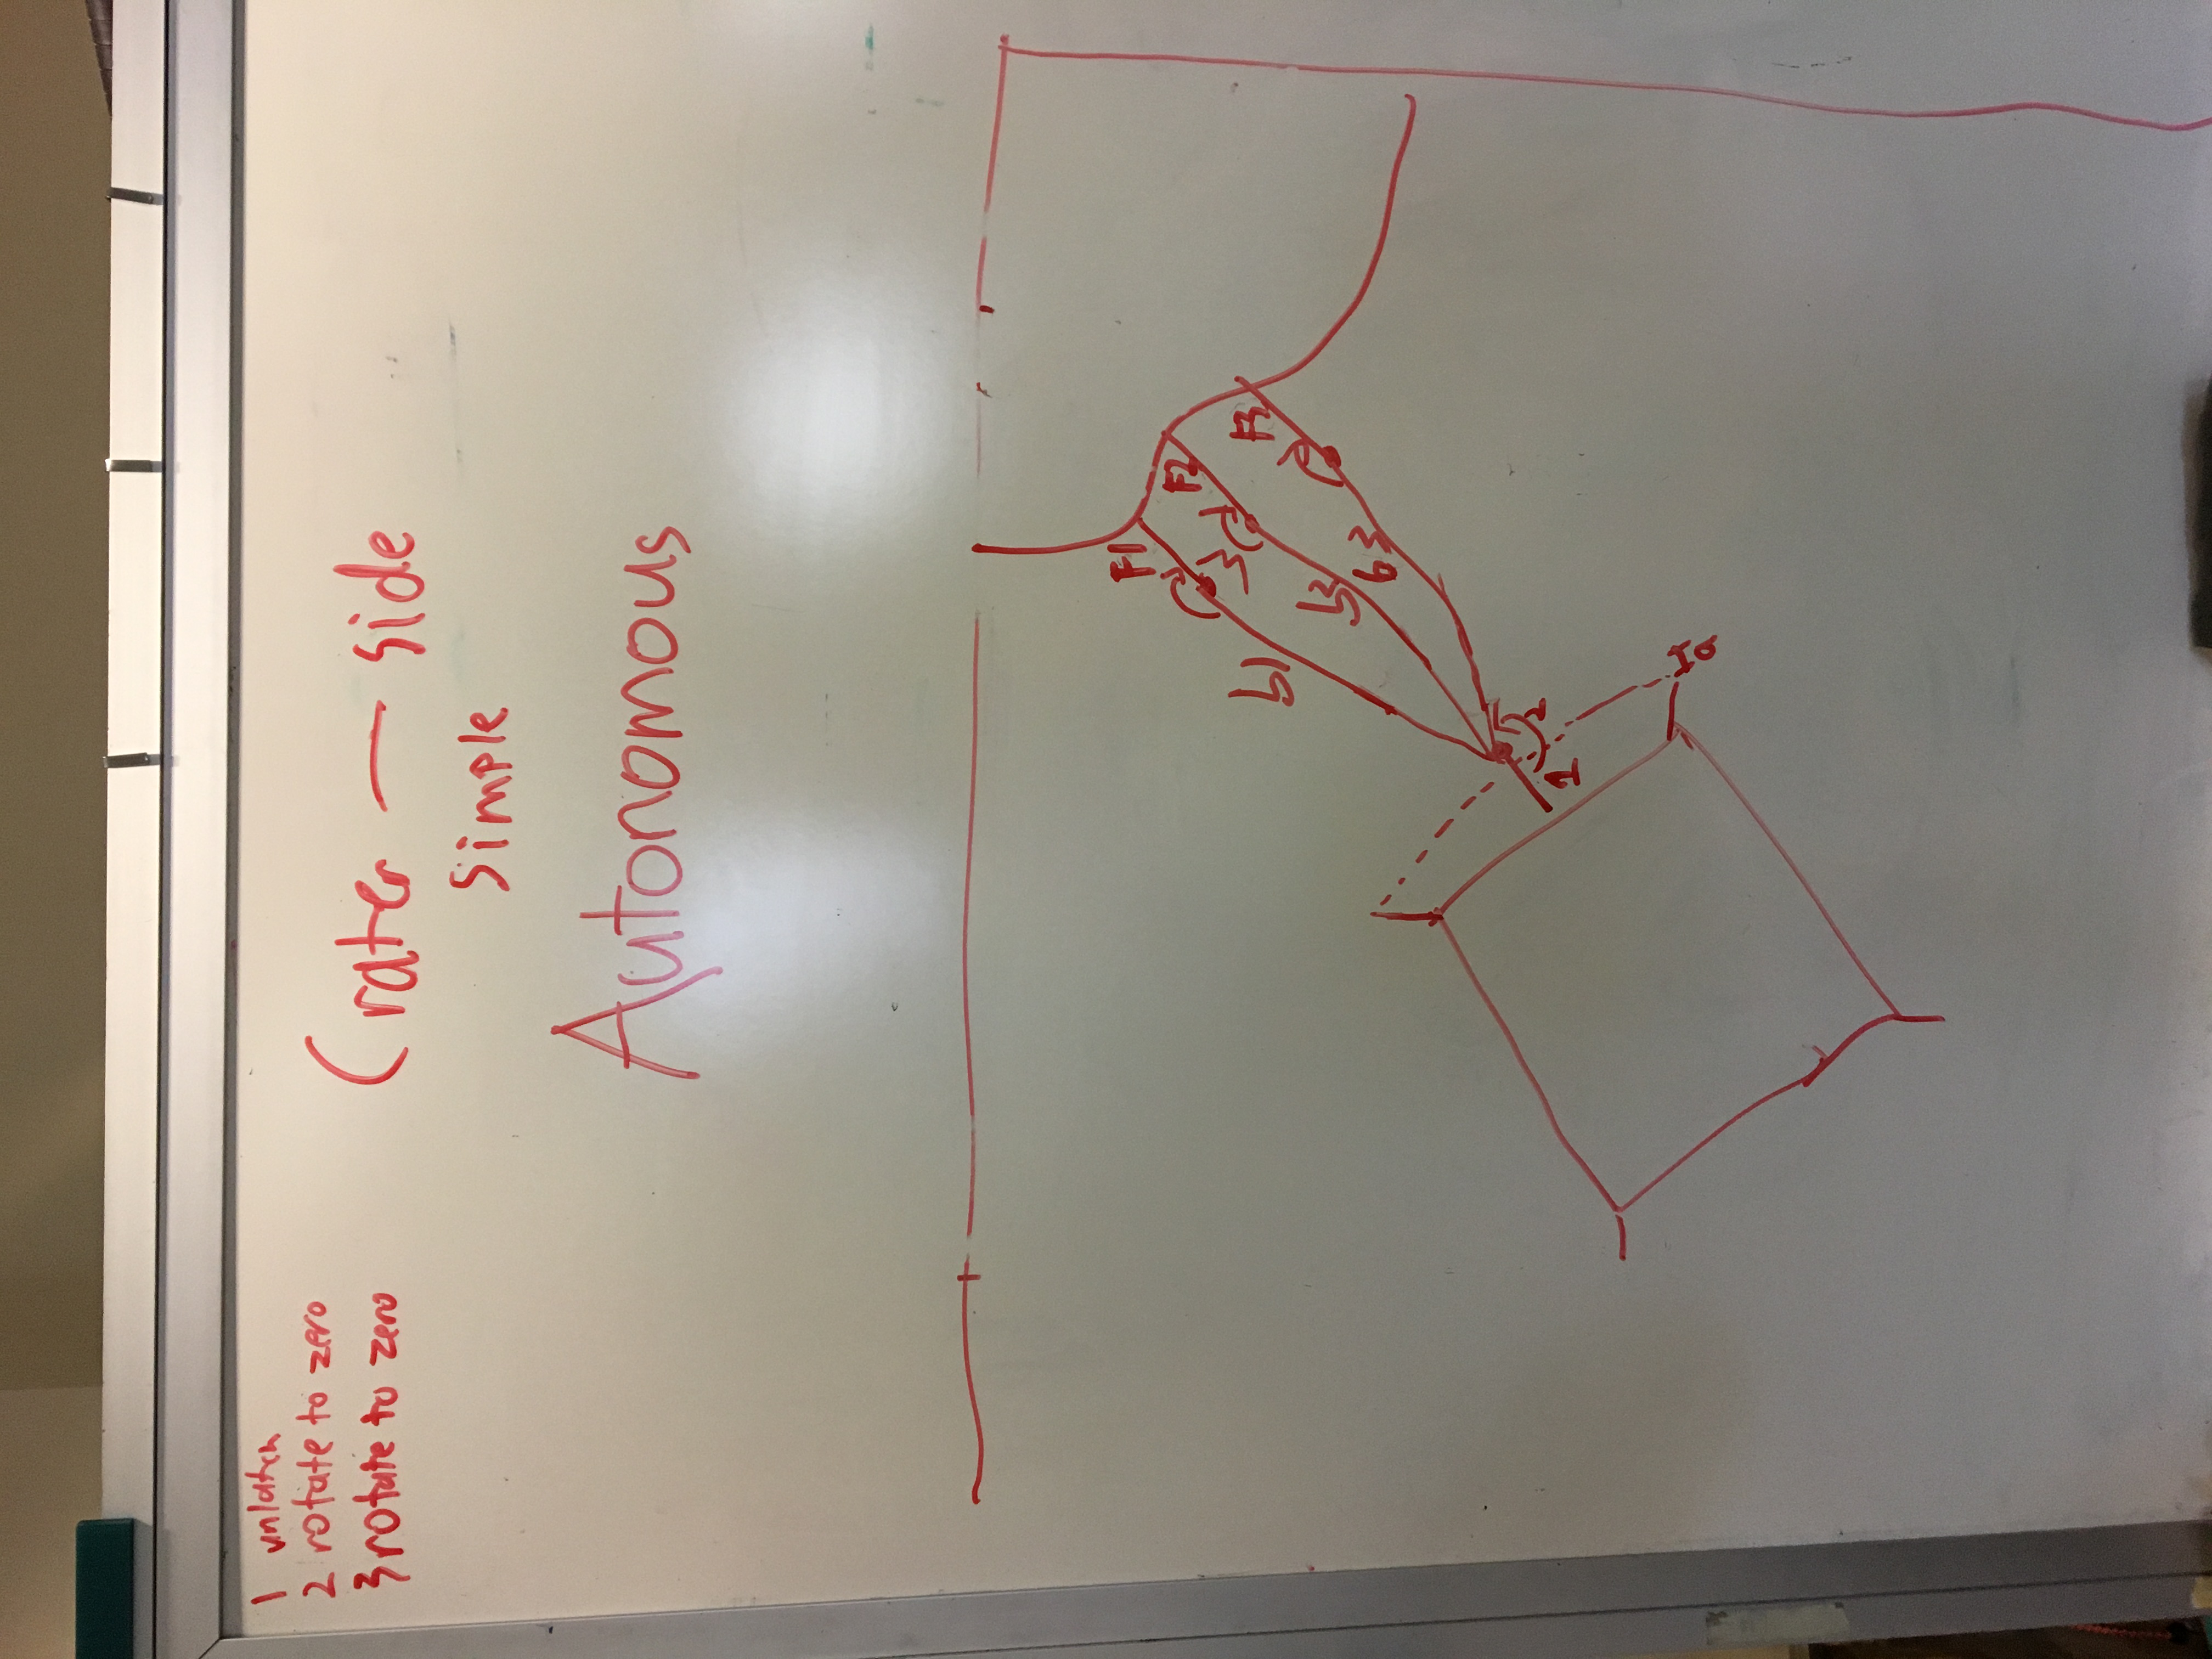 1 unlatch
2 rotate to zero
3 rotate to zero
Crater — side
Simple
Autonomous
F1
F2
3
F3
b1
b2
b3
2
1